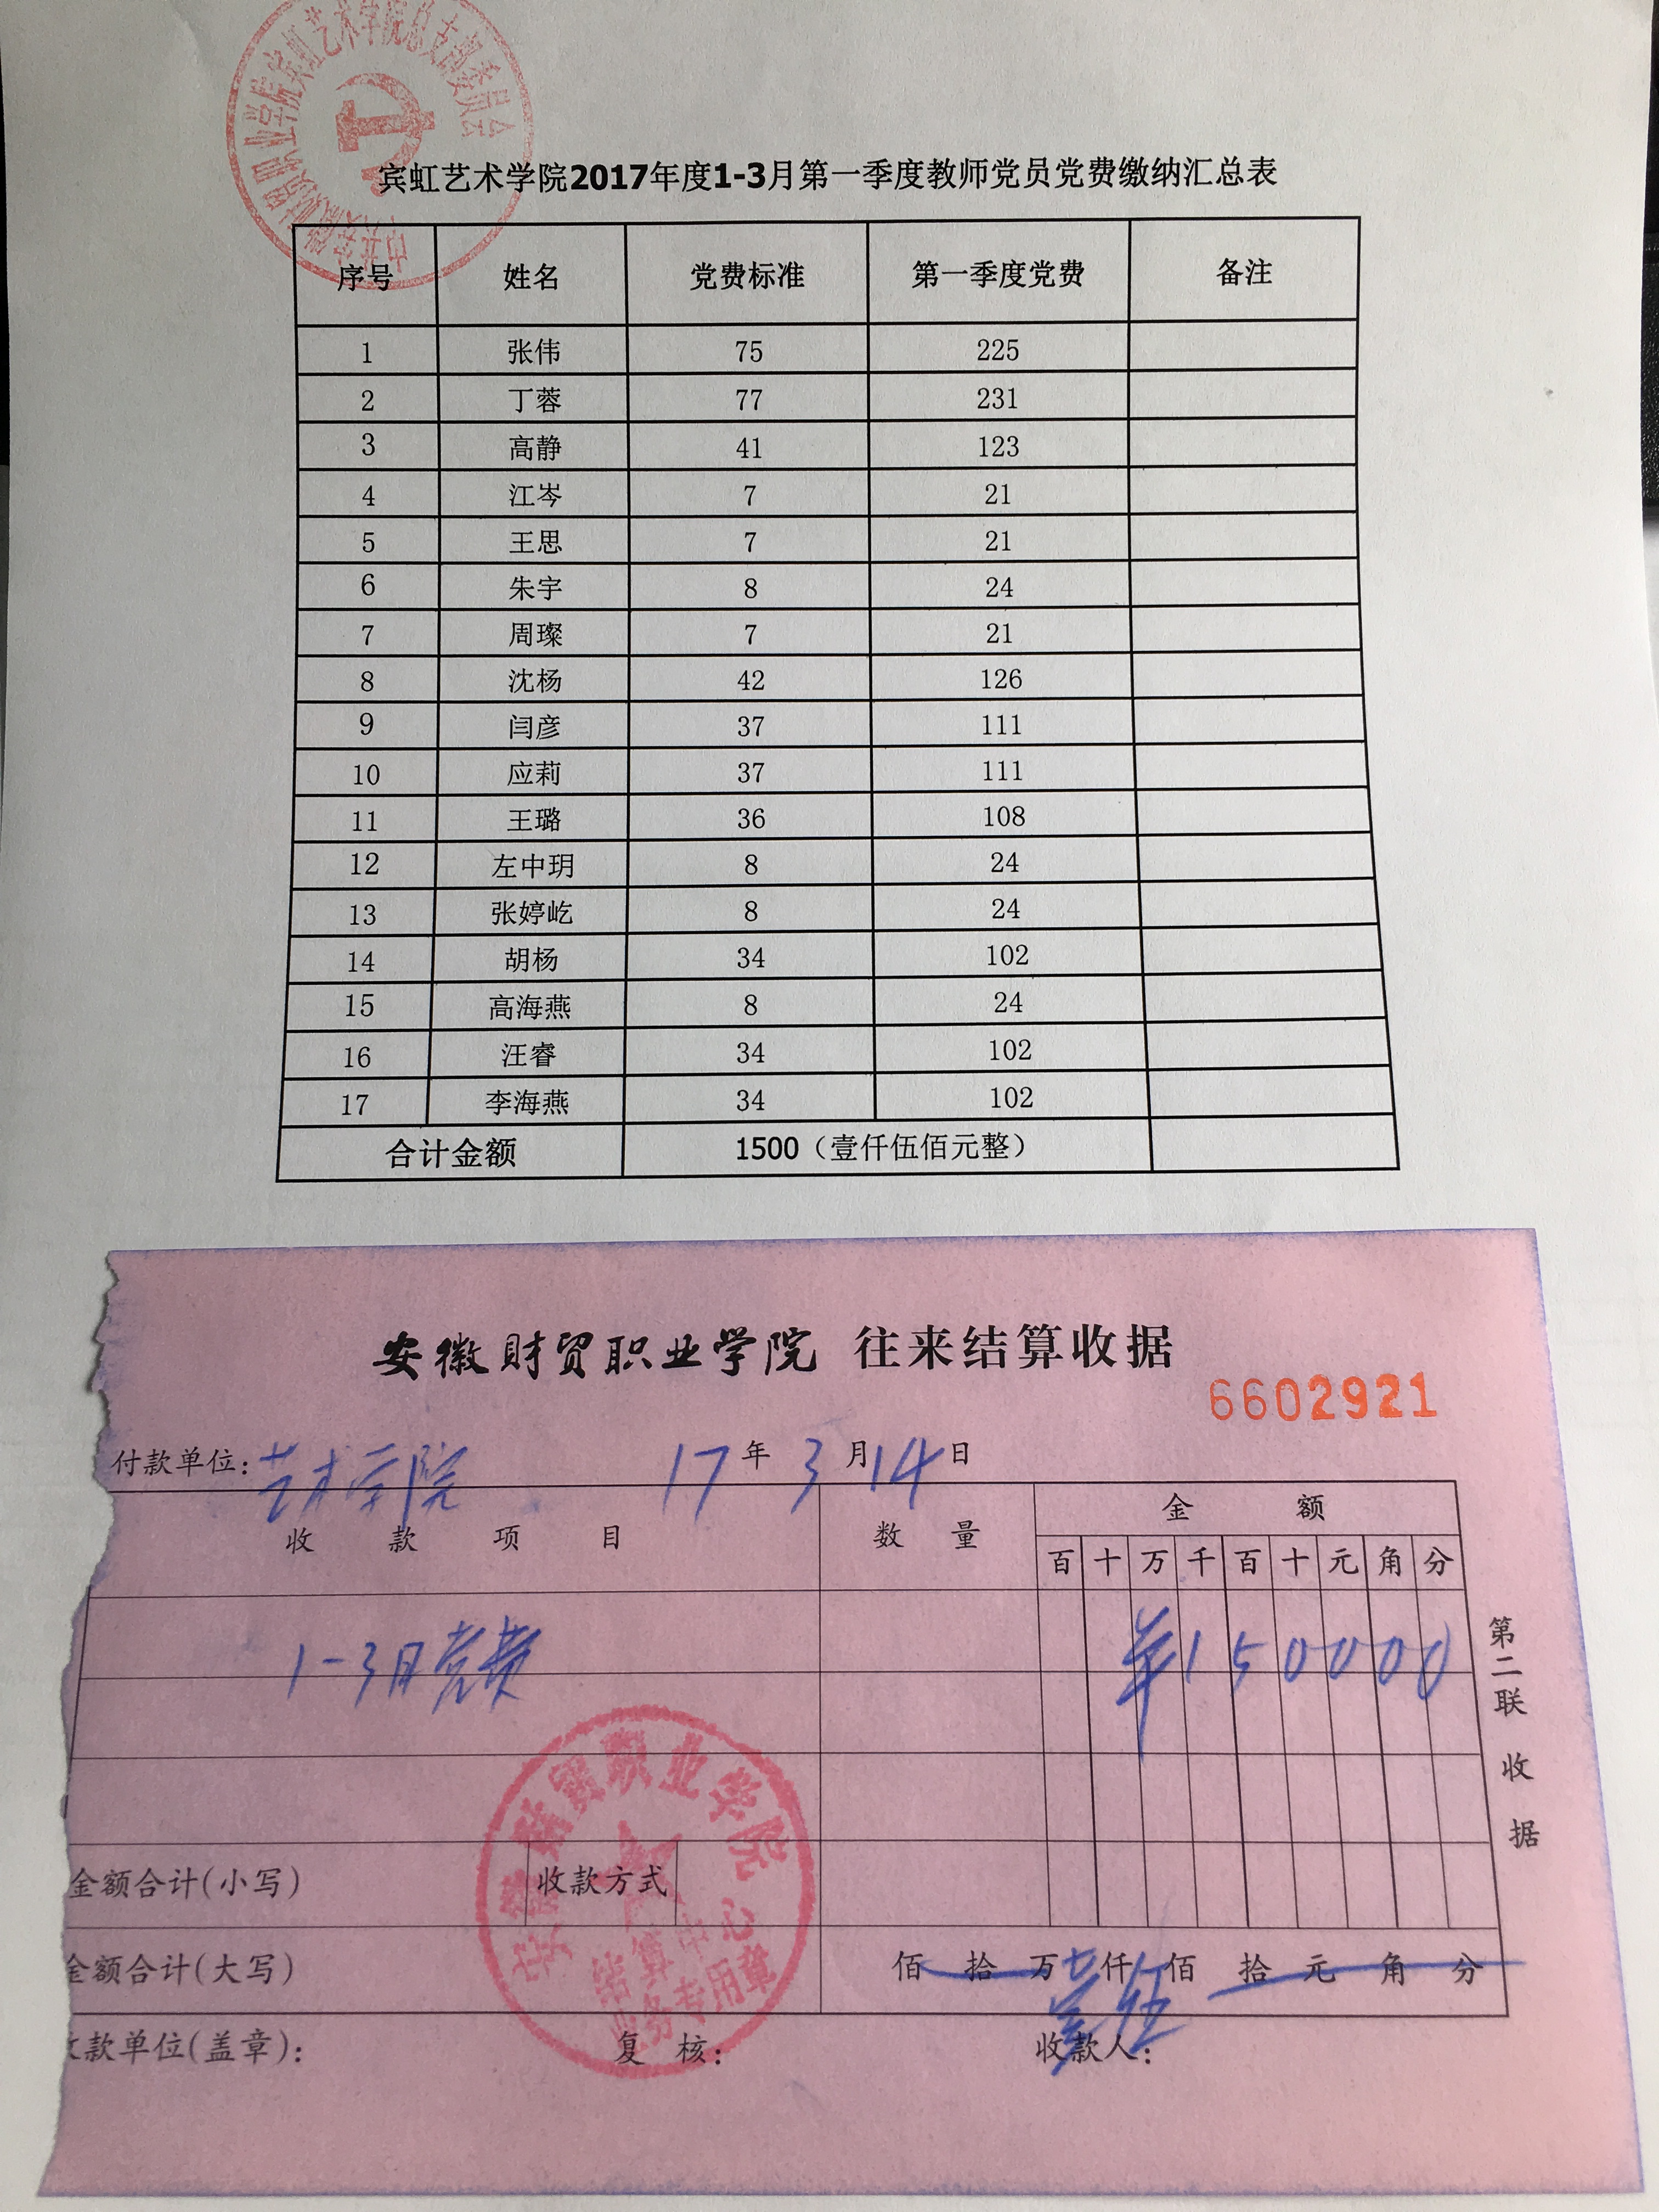 中共安徽财贸职业学院宾虹艺术学院总支部委员会
宾虹艺术学院2017年度1-3月第一季度教师党员党费缴纳汇总表
序号 姓名 党费标准 第一季度党费 备注
1 张伟 75 225
2 丁蓉 77 231
3 高静 41 123
4 江岑 7 21
5 王思 7 21
6 朱宇 8 24
7 周璨 7 21
8 沈杨 42 126
9 闫彦 37 111
10 应莉 37 111
11 王璐 36 108
12 左中玥 8 24
13 张婷屹 8 24
14 胡杨 34 102
15 高海燕 8 24
16 汪睿 34 102
17 李海燕 34 102
合计金额 1500（壹仟伍佰元整）
安徽财贸职业学院 往来结算收据
6602921
付款单位: 艺术学院 17 年 3 月 14 日
收款项目 数量 金额
百 十 万 千 百 十 元 角 分
1-3月党费 ¥150000
第二联 收据
金额合计(小写) 收款方式
金额合计(大写) 佰 拾 万 壹 仟 伍 佰 拾 元 角 分
收款单位(盖章): 复核: 收款人:
安徽财贸职业学院
结算中心
业务专用章